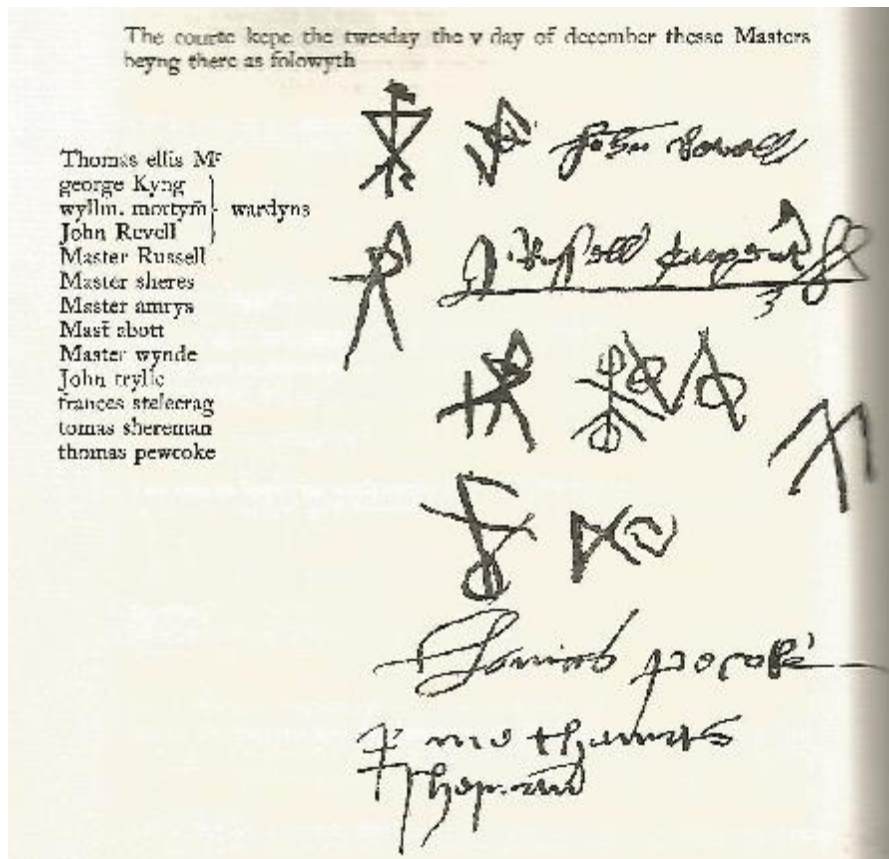 The courte kepe the twesday the v day of december thesse Masters
beyng there as folowyth
Thomas ellis Mʳ
george Kyng
wyllm. mortym̄ wardyns
John Revell
Master Russell
Master sheres
Master amrys
Mast̄ abott
Master wynde
John tryllc
frances stelecrag
tomas shereman
thomas pewcoke
John Revell
Russell
Tomas pocoke
me thamas